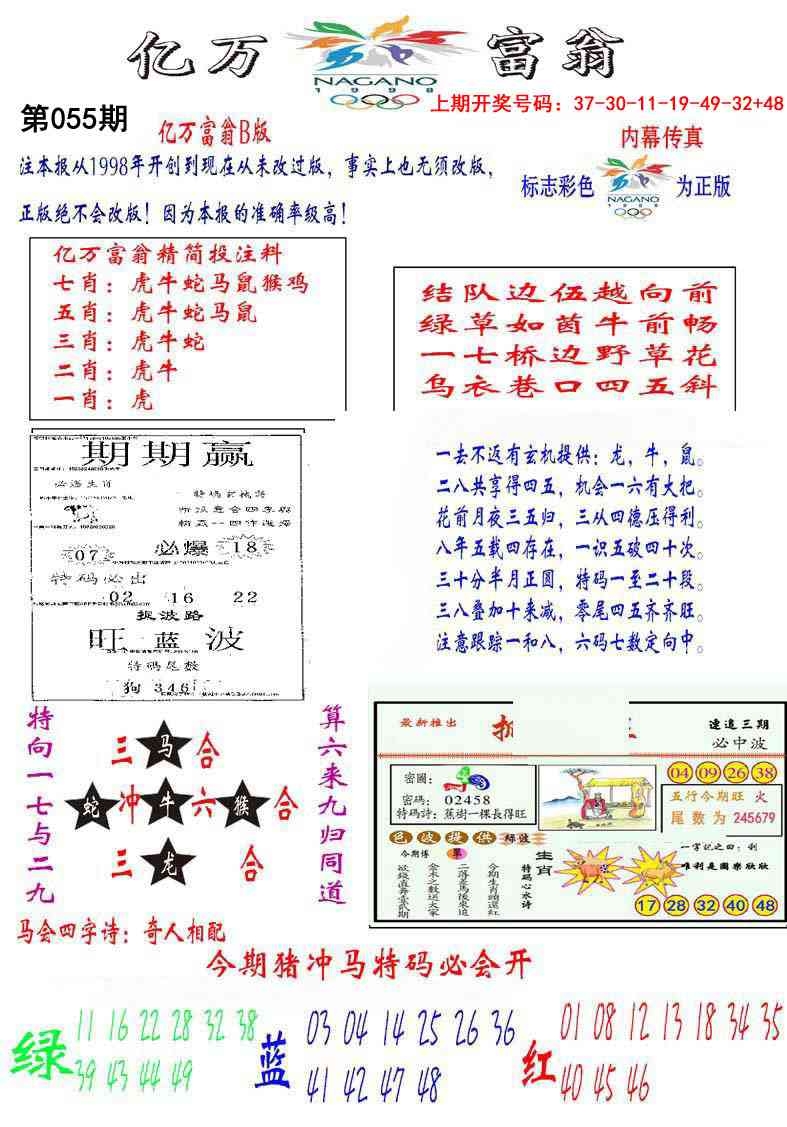 亿万富翁
NAGANO
1998
上期开奖号码：37-30-11-19-49-32+48
第055期
亿万富翁B版
内幕传真
注本报从1998年开创到现在从未改过版，事实上也无须改版，
正版绝不会改版！因为本报的准确率级高！
标志彩色
NAGANO
1998
为正版
亿万富翁精简投注料
七肖：虎牛蛇马鼠猴鸡
五肖：虎牛蛇马鼠
三肖：虎牛蛇
二肖：虎牛
一肖：虎
结队边伍越向前
绿草如茵牛前畅
一七桥边野草花
乌衣巷口四五斜
期期赢
必爆
07
18
特码必出
02 16 22
捉波路
旺蓝波
特码尾数
狗 346
一去不返有玄机提供：龙，牛，鼠。
二八共享得四五，机会一六有大把。
花前月夜三五归，三从四德压得利。
八年五载四存在，一识五破四十次。
三十分半月正圆，特码一至二十段。
三八叠加十来减，零尾四五齐齐旺。
注意跟踪一和八，六码七数定向中。
特向一七与二九
三马合
蛇冲牛六猴合
三龙合
算六来九归同道
最新推出
连追三期
必中波
密圖：
密碼：02458
特碼詩：蕉樹一棵長得旺
04 09 26 38
五行今期旺 火
尾数为245679
色波提供
绿波
今期博
單
生肖
特码心水诗
一字记之曰：利
唯利是圖樂欣欣
17 28 32 40 48
马会四字诗：奇人相配
今期猪冲马特码必会开
绿
11 16 22 28 32 38
39 43 44 49
蓝
03 04 14 25 26 36
41 42 47 48
红
01 08 12 13 18 34 35
40 45 46